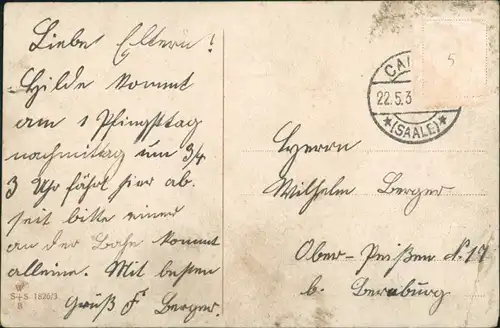 Liebe Eltern!
Hilde kommt
am 1 Pfingsttag
nachmittag um 3/4
3 Uhr fährt hier ab.
seit bitte einer
an der Bahn kommt
alleine. Mit besten
Gruß F. Berger.
W
S+S 1826/3
B
CAL
22.5.3
*(SAALE)*
5
Herrn
Wilhelm Berger
Ober-Peißen N. 17
b. Bernburg